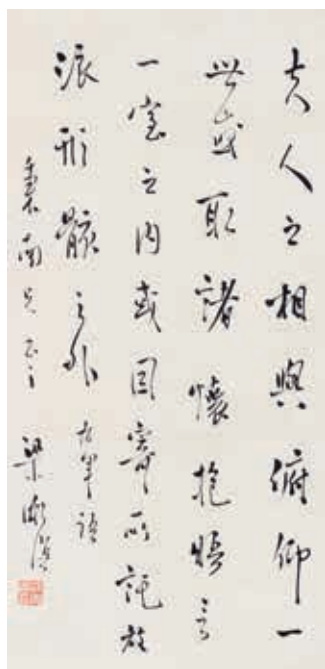 夫人之相與俯仰一
世或取諸懷抱晤言
一室之內或因寄所託放
浪形骸之外 右軍語
南兄正之 梁漱溟